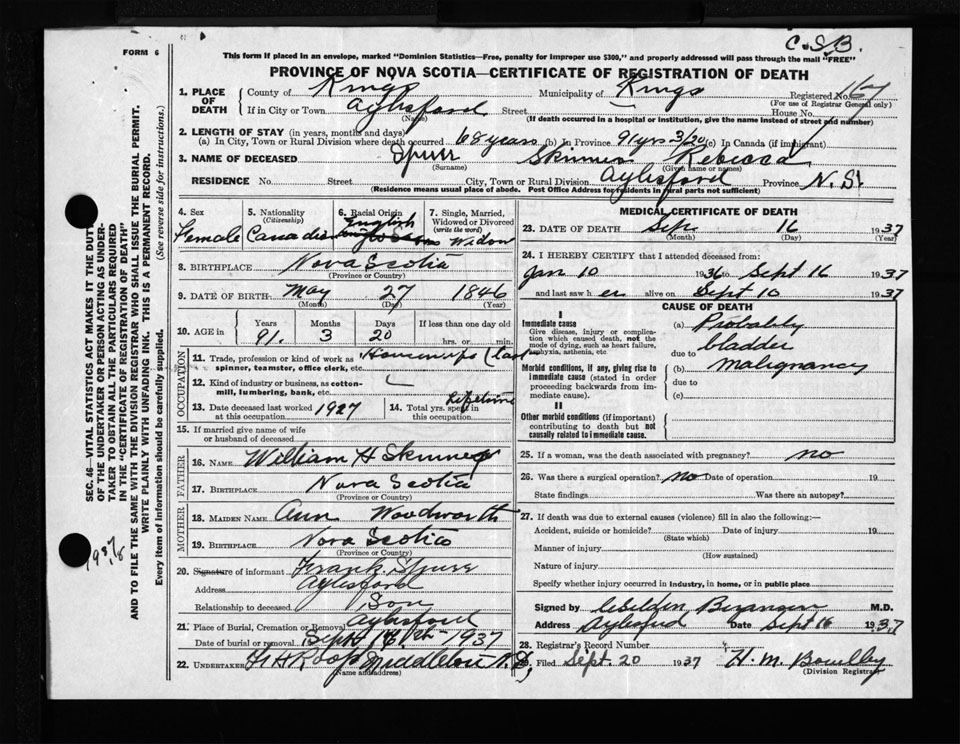 C.S.B.
FORM 6
This form if placed in an envelope, marked "Dominion Statistics—Free, penalty for improper use $300," and properly addressed will pass through the mail "FREE"
PROVINCE OF NOVA SCOTIA—CERTIFICATE OF REGISTRATION OF DEATH
1. PLACE OF DEATH
County of Kings Municipality of Kings Registered No. 67
(For use of Registrar General only)
If in City or Town Aylesford Street House No.
(Name) (If death occurred in a hospital or institution, give the name instead of street and number)
2. LENGTH OF STAY (in years, months and days)
(a) In City, Town or Rural Division where death occurred 68 years (b) In Province 91 yrs 3/20 (c) In Canada (if immigrant)
3. NAME OF DECEASED Spurr Skinner Rebecca
(Surname) (Given name or names)
RESIDENCE No. Street City, Town or Rural Division Aylesford Province N.S.
(Residence means usual place of abode. Post Office Address for residents in rural parts not sufficient)
4. Sex
Female
5. Nationality
(Citizenship)
Canadian
6. Racial Origin
English
7. Single, Married, Widowed or Divorced
(write the word)
Widow
8. BIRTHPLACE Nova Scotia
(Province or Country)
9. DATE OF BIRTH May 27 1846
(Month) (Day) (Year)
10. AGE in Years Months Days If less than one day old
91 3 20 hrs. or min.
OCCUPATION
11. Trade, profession or kind of work as spinner, teamster, office clerk, etc. Housewife
12. Kind of industry or business, as cotton-mill, lumbering, bank, etc.
13. Date deceased last worked at this occupation 1927
14. Total yrs. spent in this occupation Lifetime
15. If married give name of wife or husband of deceased
FATHER
16. NAME William H Skinner
17. BIRTHPLACE Nova Scotia
(Province or Country)
MOTHER
18. MAIDEN NAME Ann Woodworth
19. BIRTHPLACE Nova Scotia
(Province or Country)
20. Signature of informant Frank Spurr
Address Aylesford
Relationship to deceased Son
21. Place of Burial, Cremation or Removal Aylesford
Date of burial or removal Sept 1937
22. UNDERTAKER Roop Middleton N.S.
(Name and address)
MEDICAL CERTIFICATE OF DEATH
23. DATE OF DEATH Sep. 16 1937
(Month) (Day) (Year)
24. I HEREBY CERTIFY that I attended deceased from:
Jan 10 1936 to Sept 16 1937
and last saw her alive on Sept 10 1937
CAUSE OF DEATH
I
Immediate cause
Give disease, injury or complication which caused death, not the mode of dying, such as heart failure, asphyxia, asthenia, etc
(a) Probably
bladder
due to
Morbid conditions, if any, giving rise to immediate cause (stated in order proceeding backwards from immediate cause).
(b) malignancy
due to
(c)
II
Other morbid conditions (if important) contributing to death but not causally related to immediate cause.
25. If a woman, was the death associated with pregnancy? no
26. Was there a surgical operation? no Date of operation 19
State findings Was there an autopsy?
27. If death was due to external causes (violence) fill in also the following:—
Accident, suicide or homicide? Date of injury 19
(State which)
Manner of injury
(How sustained)
Nature of injury
Specify whether injury occurred in industry, in home, or in public place
Signed by M.D.
Address Aylesford Date Sept 16 1937
28. Registrar's Record Number
29. Filed Sept. 20 1937 H. M. Bowlby
(Division Registrar)
SEC. 46—VITAL STATISTICS ACT MAKES IT THE DUTY
OF THE UNDERTAKER OR PERSON ACTING AS UNDER-
TAKER TO OBTAIN ALL THE PARTICULARS REQUIRED
IN THE "CERTIFICATE OF REGISTRATION OF DEATH"
AND TO FILE THE SAME WITH THE DIVISION REGISTRAR WHO SHALL ISSUE THE BURIAL PERMIT.
WRITE PLAINLY WITH UNFADING INK. THIS IS A PERMANENT RECORD.
Every item of information should be carefully supplied. (See reverse side for instructions.)